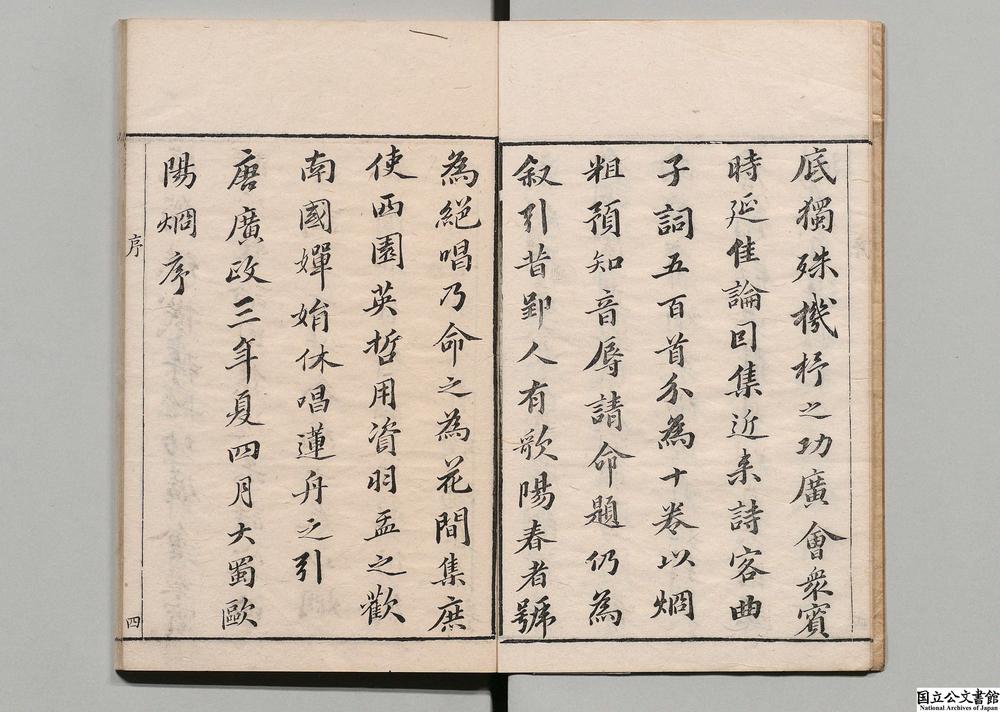 底獨殊機杼之功廣會衆賓
時延佳論因集近來詩客曲
子詞五百首分為十卷以烱
粗預知音辱請命題仍為
叙引昔郢人有歌陽春者號
為絕唱乃命之為花間集庶
使西園英哲用資羽盃之歡
南國嬋娟休唱蓮舟之引
唐廣政三年夏四月大蜀歐
陽烱序
序
四
国立公文書館
National Archives of Japan